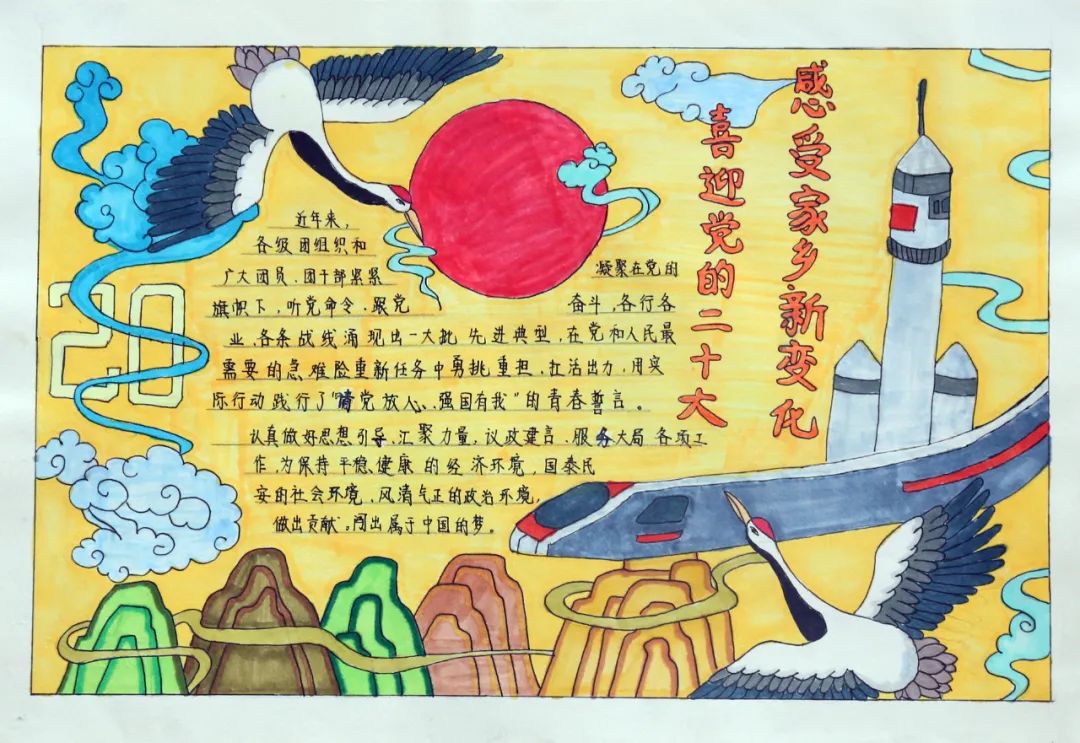 感受家乡新变化
喜迎党的二十大
20
近年来，
各级团组织和
广大团员、团干部紧紧 凝聚在党的
旗帜下，听党命令、跟党 奋斗，各行各
业、各条战线涌现出一大批先进典型，在党和人民最
需要的急难险重新任务中勇挑重担、扛活出力，用实
际行动践行了“请党放人、强国有我”的青春誓言。
认真做好思想引导、汇聚力量，议政建言、服务大局各项工
作，为保持平稳健康的经济环境，国泰民
安的社会环境，风清气正的政治环境，
做出贡献。闯出属于中国的梦。